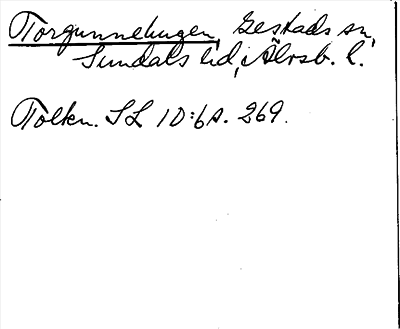 Torgunnehugen, Gestads sn,
Sundals hd, Älvsb. l.
Tolkn. SL 10:6 s. 269.